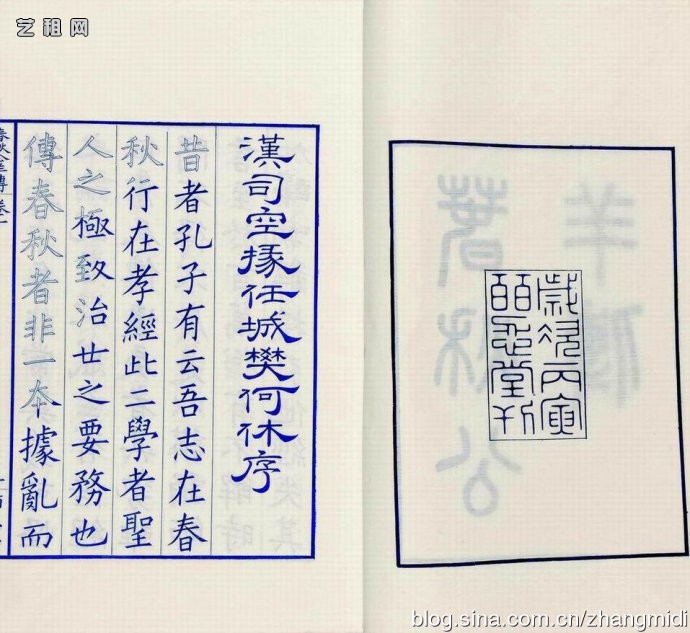 艺租网
歲次丙寅
皕忍堂刊
漢司空掾任城樊何休序
昔者孔子有云吾志在春
秋行在孝經此二學者聖
人之極致治世之要務也
傳春秋者非一本據亂而
blog.sina.com.cn/zhangmidi